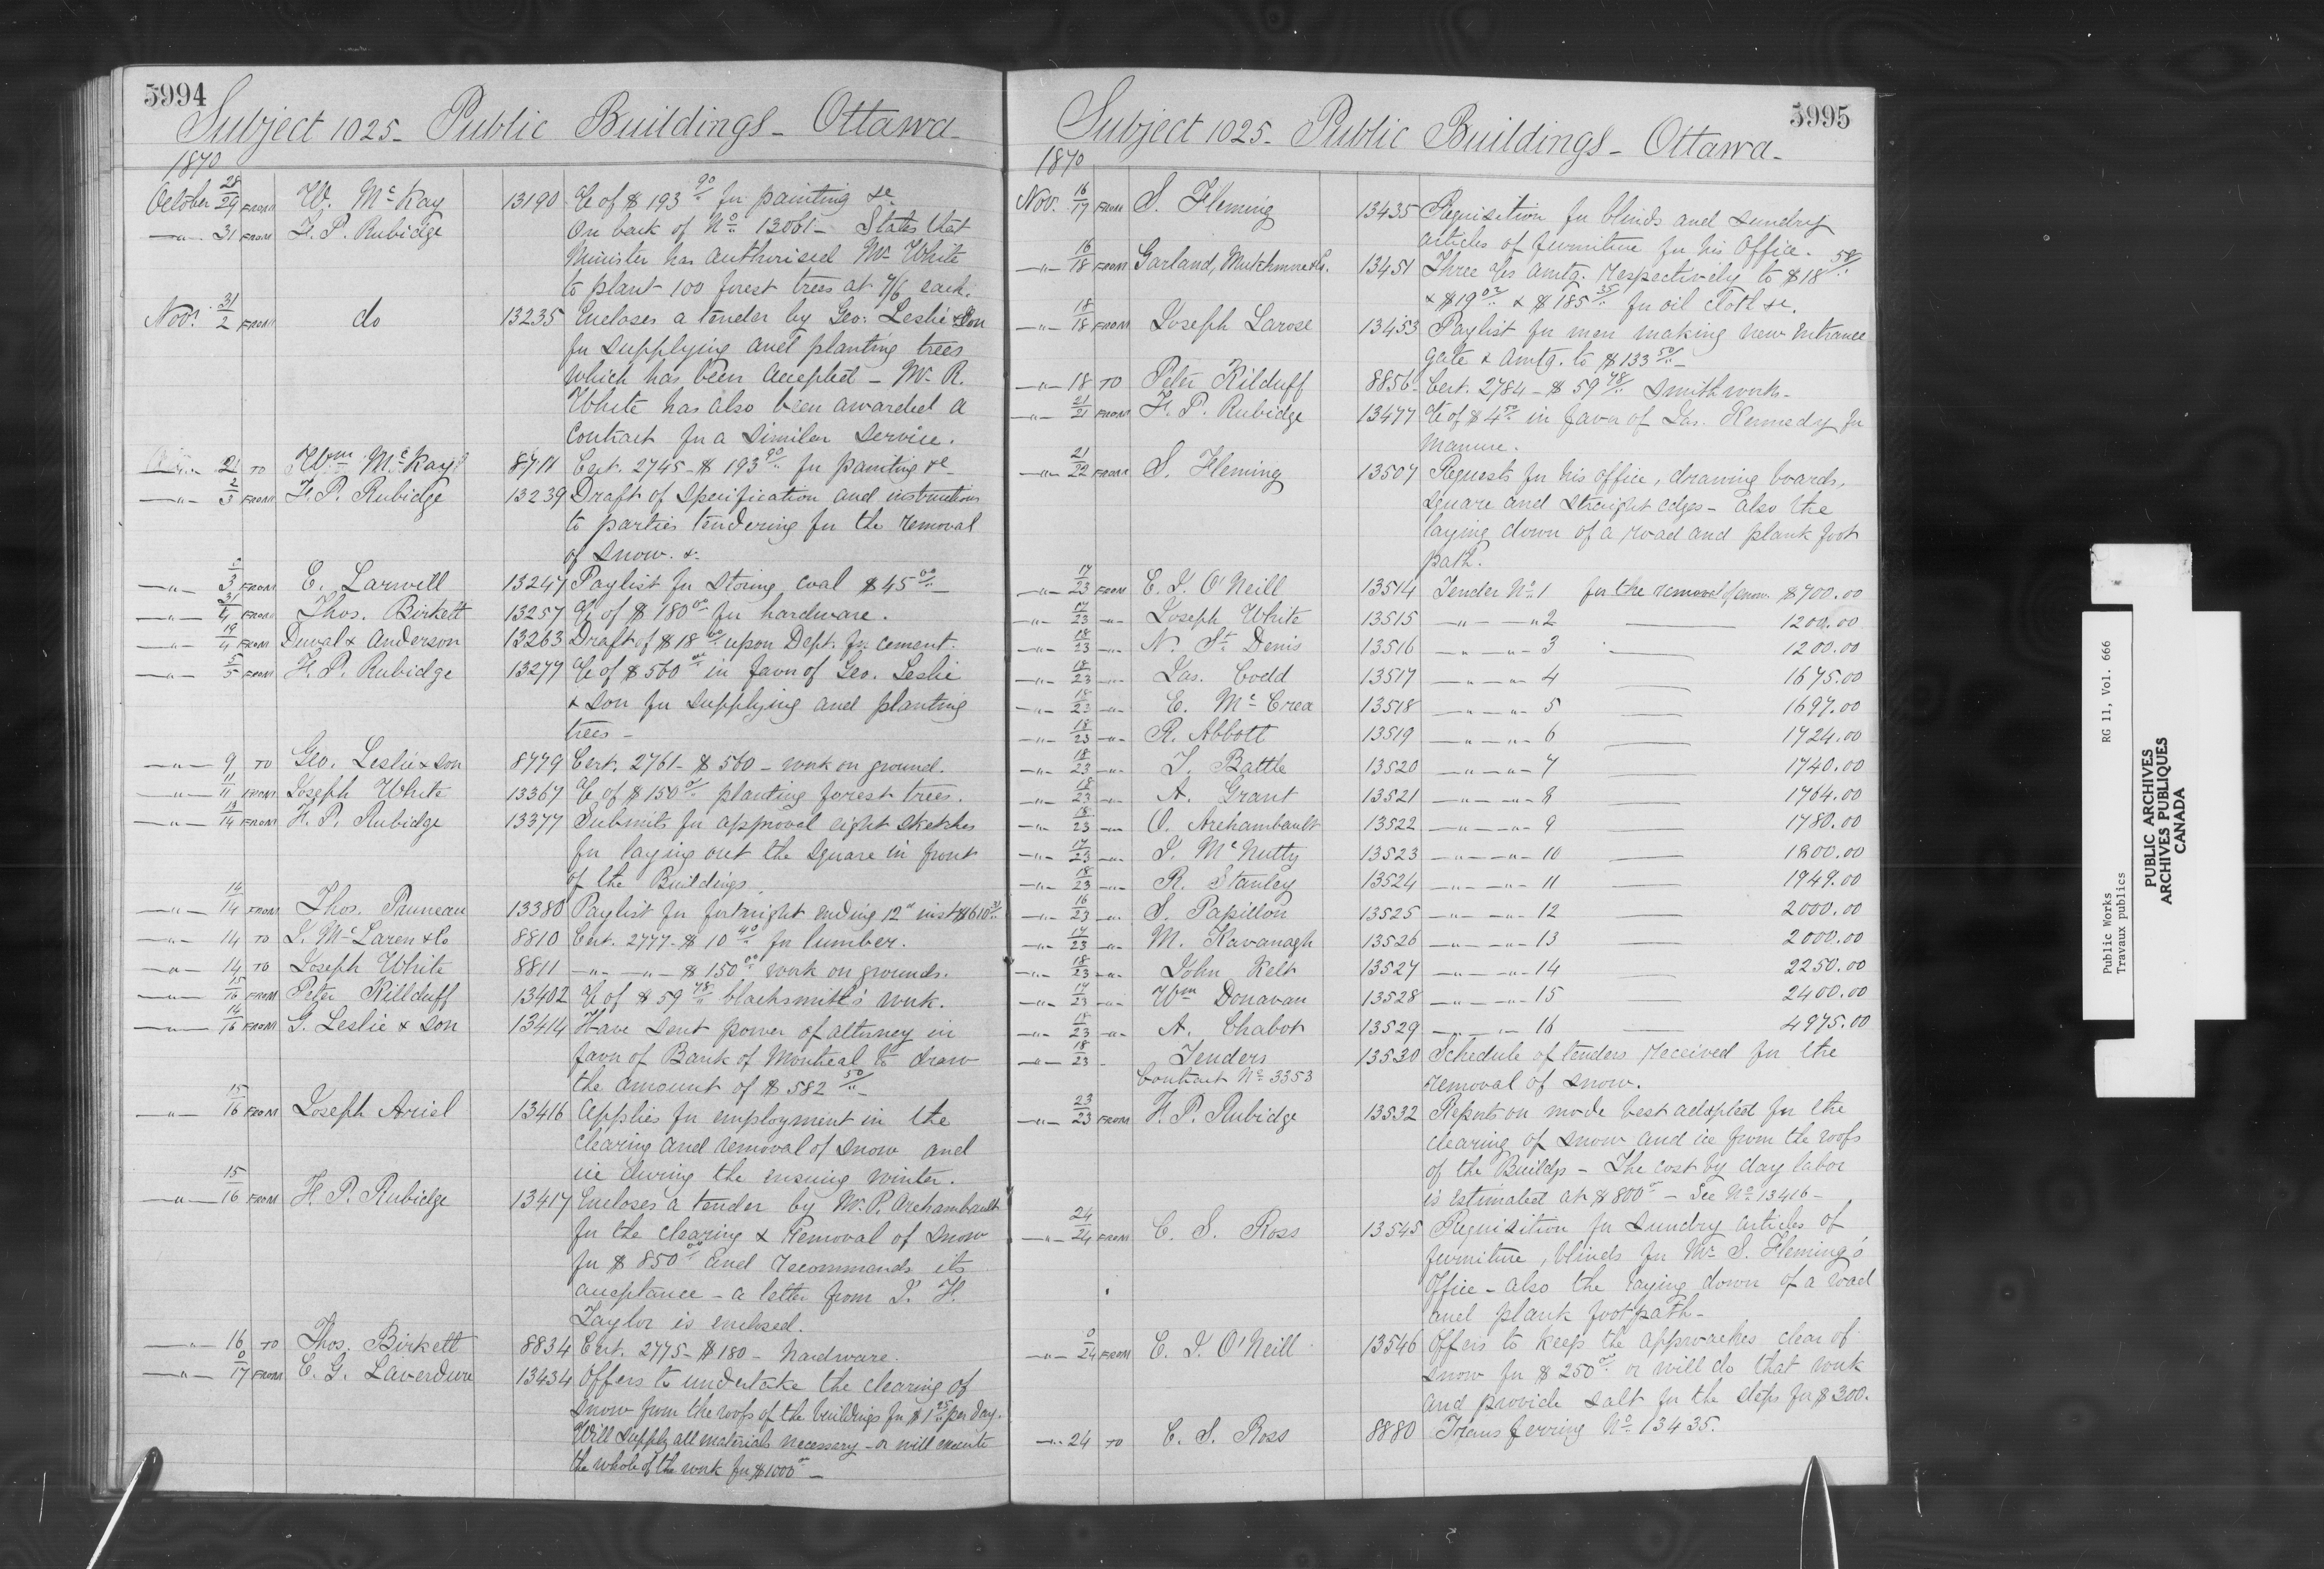 5994
Subject 1025 - Public Buildings - Ottawa -
1870
October 28/29 FROM W. McKay 13190 a/c of $193 90/ for painting &c
-"- 31 FROM F. P. Rubidge On back of No. 13061 - States that
Minister has authorised Mr White
to plant 100 forest trees at 7/6 each.
Nov. 31/2 FROM do 13235 Encloses a tender by Geo. Leslie & Son
for supplying and planting trees
which has been accepted - Mr R.
White has also been awarded a
contract for a similar service.
2 TO Wm McKay 8711 Cert. 2745 - $193 90/ for painting &c
-"- 2/3 FROM F. P. Rubidge 13239 Draft of specification and instructions
to parties tendering for the removal
of snow. &.
-"- 3 FROM E. Larwill 13247 Paylist for storing coal $45 00/ -
-"- 31/4 FROM Thos. Birkett 13257 a/c of $180 00 for hardware.
-"- 19/4 FROM Duval & Anderson 13263 Draft of $18 00 upon Dept. for cement.
-"- 5/5 FROM F. P. Rubidge 13277 a/c of $560 00 in favor of Geo. Leslie
& Son for supplying and planting
trees -
-"- 9 TO Geo. Leslie & Son 8779 Cert. 2761 - $560 - work on ground.
-"- 11/11 FROM Joseph White 13367 a/c of $150 0/ planting forest trees.
-"- 13/14 FROM F. P. Rubidge 13377 Submits for approval eight sketches
for laying out the square in front
of the Buildings.
-"- 14/14 FROM Thos. Pruneau 13380 Paylist for fortnight ending 12" inst $610
-"- 14 TO J. McLaren & Co 8810 Cert. 2777 - $10 40/ for lumber.
-"- 14 TO Joseph White 8811 -"- -"- $150 00 work on grounds.
-"- 15/16 FROM Peter Killduff 13402 a/c of $59 78/ blacksmith's work.
-"- 14/16 FROM G. Leslie & Son 13414 Have sent power of attorney in
favor of Bank of Montreal to draw
the amount of $582 50/ -
-"- 15/16 FROM Joseph Ariel 13416 Applies for employment in the
clearing and removal of snow and
ice during the ensuing winter.
-"- 15/16 FROM F. P. Rubidge 13417 Encloses a tender by Mr. P. Archambault
for the clearing & Removal of snow
for $850 00 and recommends its
acceptance - a letter from J. H.
Taylor is enclosed.
-"- 16 TO Thos. Birkett 8834 Cert. 2775 - $180 - hardware.
-"- 0/17 FROM C. G. Laverdure 13434 Offers to undertake the clearing of
snow from the roofs of the buildings for $1 25 per day.
Will supply all materials necessary - or will execute
the whole of the work for $1000 0/ -
5995
Subject 1025 - Public Buildings - Ottawa -
1870
Nov. 16/17 FROM S. Fleming 13435 Requisition for blinds and sundry
articles of furniture for his Office.
-"- 16/18 FROM Garland, Mutchmor & Co. 13451 Three a/cs amtg. respectively to $18 58/
& $19 02 & $185 35 for oil cloth &c.
-"- 18/18 FROM Joseph Larose 13453 Paylist for men making new Entrance
gate & amtg. to $133 50/ -
-"- 18 TO Peter Kilduff 8856 - Cert. 2784 - $59 78/ Smith work -
-"- 21/21 FROM F. P. Rubidge 13477 a/c of $4 50 in favor of Jas. Kennedy for
manure.
-"- 21/22 FROM S. Fleming 13507 Requests for his office, drawing boards,
square and straight edges - also the
laying down of a road and plank foot
path.
-"- 17/23 FROM C. J. O'Neill 13514 Tender No. 1 for the removal of snow. $700.00
-"- 17/23 -"- Joseph White 13515 -"- -"- 2 1200.00
-"- 18/23 -"- N. St. Denis 13516 -"- -"- 3 1200.00
-"- 18/23 -"- Jas. Codd 13517 -"- -"- 4 1675.00
-"- 18/23 -"- E. McCrea 13518 -"- -"- 5 1697.00
-"- 18/23 -"- R. Abbott 13519 -"- -"- 6 1724.00
-"- 18/23 -"- J. Battle 13520 -"- -"- 7 1740.00
-"- 18/23 -"- A. Grant 13521 -"- -"- 8 1764.00
-"- 18/23 -"- O. Archambault 13522 -"- -"- 9 1780.00
-"- 17/23 -"- J. McNulty 13523 -"- -"- 10 1800.00
-"- 18/23 -"- R. Stanley 13524 -"- -"- 11 1949.00
-"- 16/23 -"- S. Papillon 13525 -"- -"- 12 2000.00
-"- 17/23 -"- M. Kavanagh 13526 -"- -"- 13 2000.00
-"- 18/23 -"- John Kelt 13527 -"- -"- 14 2250.00
-"- 17/23 -"- Wm Donavan 13528 -"- -"- 15 2400.00
-"- 18/23 -"- A. Chabot 13529 -"- -"- 16 4975.00
-"- 18/23 - Tenders 13530 Schedule of tenders received for the
Contract No. 3353 removal of snow.
-"- 23/23 FROM F. P. Rubidge 13532 Reports on mode best adapted for the
clearing of snow and ice from the roofs
of the Buildgs - The cost by day labor
is estimated at $800 0/ - See No. 13416 -
-"- 24/24 FROM C. S. Ross 13545 Requisition for sundry articles of
furniture, blinds for Mr S. Fleming's
Office - also the laying down of a road
and plank footpath -
-"- 0/24 FROM C. J. O'Neill 13546 Offers to keep the approaches clear of
snow for $250 00 or will do that work
and provide salt for the steps for $300.
-"- 24 TO C. S. Ross 8880 Transferring No. 13435.
Public Works RG 11, Vol. 666
Travaux publics
PUBLIC ARCHIVES
ARCHIVES PUBLIQUES
CANADA